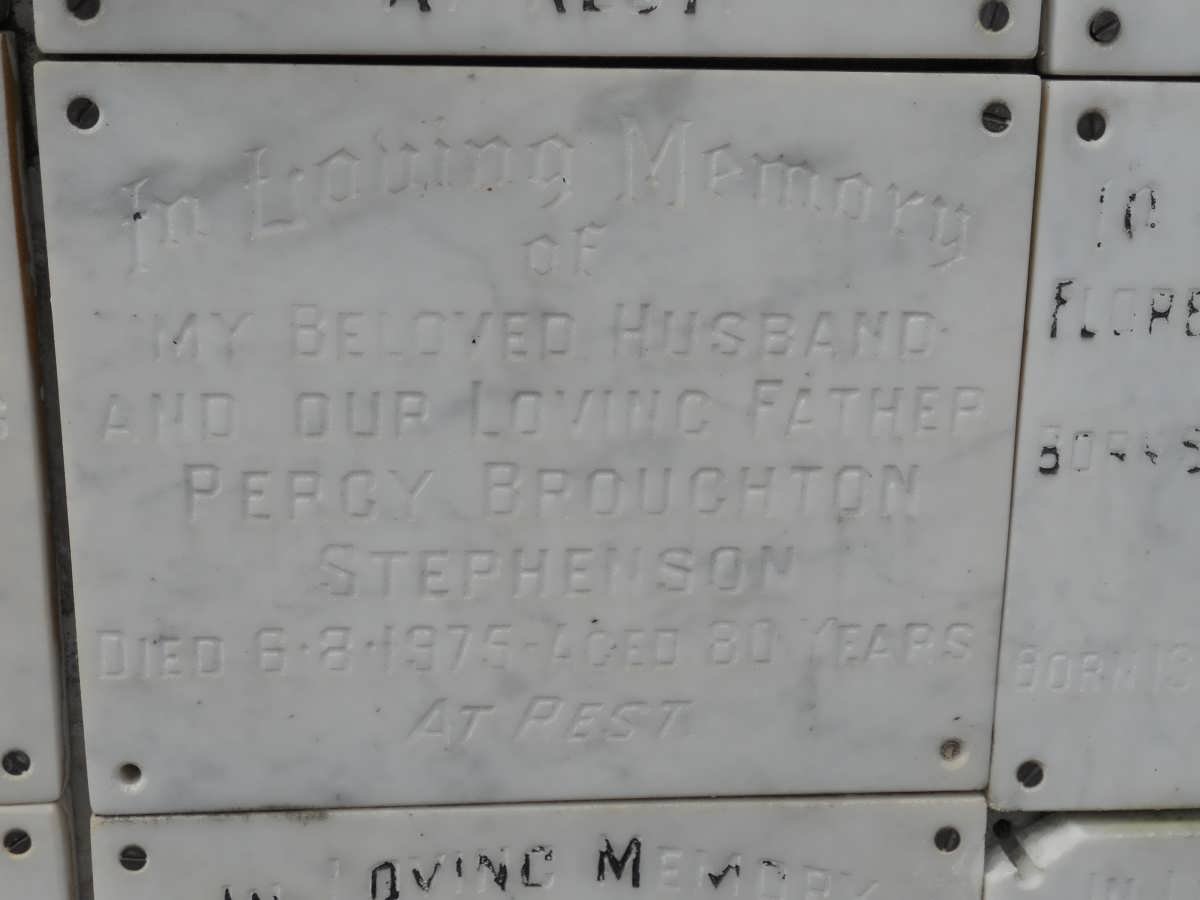 AT REST.
In Loving Memory
of
MY BELOVED HUSBAND
AND OUR LOVING FATHER
PERCY BROUGHTON
STEPHENSON
DIED 6·8·1975-AGED 80 YEARS
AT REST.
In
FLORE
BORN
BORN 
IN LOVING MEMORY